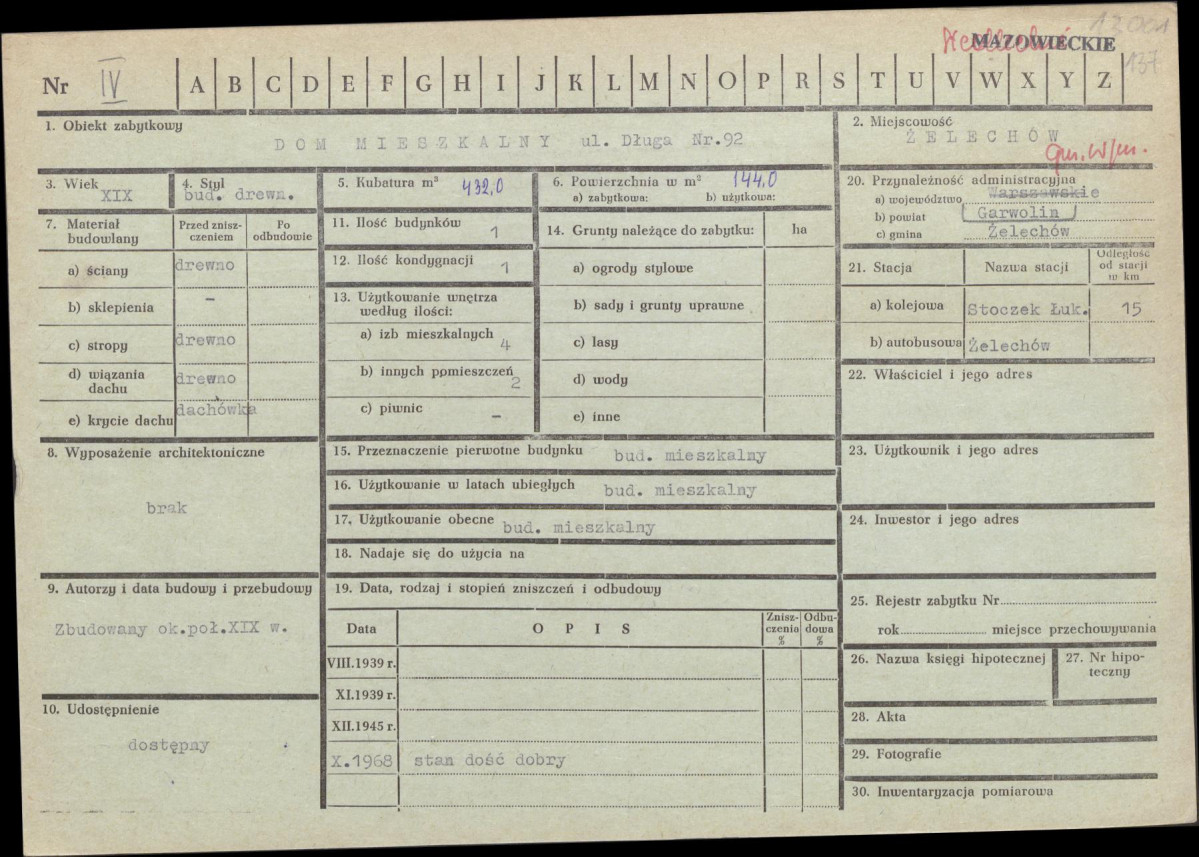 12001
MAZOWIECKIE
137
Nr IV A B C D E F G H I J K L M N O P R S T U V W X Y Z
1. Obiekt zabytkowy
DOM MIESZKALNY ul. Długa Nr.92
2. Miejscowość
ŻELECHÓW
gm. w/m.
3. Wiek
XIX
4. Styl
bud. drewn.
5. Kubatura m³ 432,0
6. Powierzchnia w m² 144,0
a) zabytkowa: b) użytkowa:
20. Przynależność administracyjna
a) województwo Warszawskie
b) powiat Garwolin
c) gmina Żelechów
7. Materiał budowlany
Przed znisz-
czeniem
Po
odbudowie
a) ściany drewno
b) sklepienia –
c) stropy drewno
d) wiązania
dachu drewno
e) krycie dachu dachówka
11. Ilość budynków 1
12. Ilość kondygnacji 1
13. Użytkowanie wnętrza
według ilości:
a) izb mieszkalnych 4
b) innych pomieszczeń 2
c) piwnic –
14. Grunty należące do zabytku: ha
a) ogrody stylowe
b) sady i grunty uprawne
c) lasy
d) wody
e) inne
21. Stacja Nazwa stacji
Odległość
od stacji
w km
a) kolejowa Stoczek Łuk. 15
b) autobusowa Żelechów
22. Właściciel i jego adres
8. Wyposażenie architektoniczne
brak
15. Przeznaczenie pierwotne budynku bud. mieszkalny
16. Użytkowanie w latach ubiegłych bud. mieszkalny
17. Użytkowanie obecne bud. mieszkalny
18. Nadaje się do użycia na
23. Użytkownik i jego adres
24. Inwestor i jego adres
9. Autorzy i data budowy i przebudowy
Zbudowany ok.poł.XIX w.
10. Udostępnienie
dostępny
19. Data, rodzaj i stopień zniszczeń i odbudowy
Data OPIS
Znisz-
czenia
%
Odbu-
dowa
%
VIII.1939 r.
XI.1939 r.
XII.1945 r.
X.1968 stan dość dobry
25. Rejestr zabytku Nr
rok miejsce przechowywania
26. Nazwa księgi hipotecznej
27. Nr hipo-
teczny
28. Akta
29. Fotografie
30. Inwentaryzacja pomiarowa